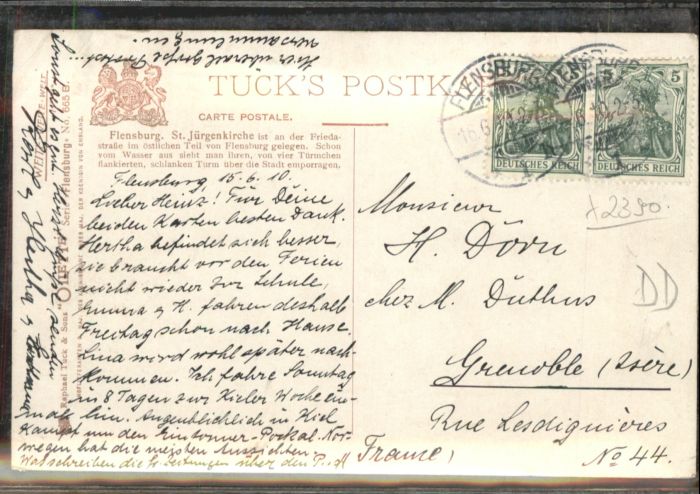 TUCK'S POSTK
CARTE POSTALE.
Flensburg. St. Jürgenkirche ist an der Frieda-
straße im östlichen Teil von Flensburg gelegen. Schon
vom Wasser aus sieht man ihren, von vier Türmchen
flankierten, schlanken Turm über die Stadt emporragen.
Flensburg 15.6.10.
Lieber Heinz! Für Deine
beiden Karten besten Dank.
Hertha befindet sich besser,
sie braucht vor den Ferien
nicht wieder zur Schule,
Emma & H. fahren deshalb
Freitag schon nach Hause.
Lina wird wohl später nach-
kommen. Ich fahre Sonntag
in 8 Tagen zur Kieler Woche
mal hin. Augenblicklich in Kiel
Kampf um den Eintonner-Pokal. Nor-
wegen hat die meisten Aussichten.
Was schreiben die Zeitungen über den
Hier überall große
versammlungen.
Sonst geht es gut. Herzl. Grüße senden
Hertha &
Raphael Tuck & Sons
Serie Flensburg. No. 665 B.
FLENSBURG
5
DEUTSCHES REICH
DEUTSCHES REICH
2390.
DD
Monsieur
H. Dörn
chez M. Duthus
Grenoble (Isère)
Rue Lesdiguières
No 44.
France,